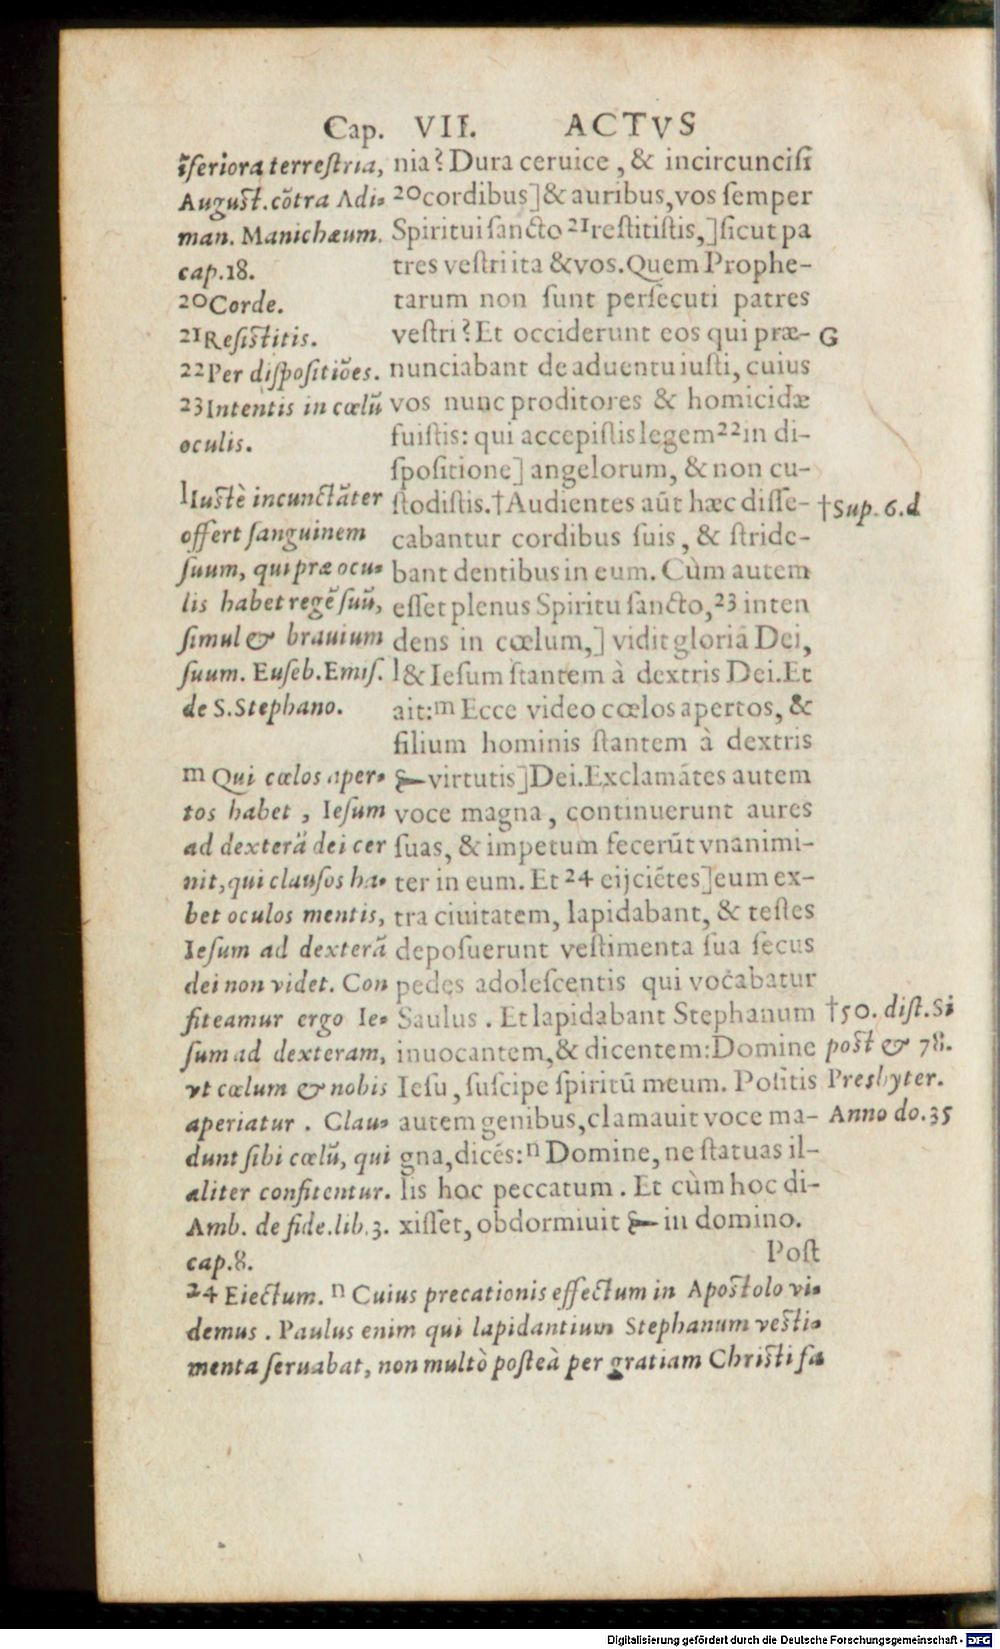 Cap. VII. ACTVS
ĩferiora terreſtria,
Auguſt. cõtra Adi-
man. Manichæum.
cap.18.
20 Corde.
21 Reſiſtitis.
22 Per diſpoſitiões.
23 Intentis in cœlũ
oculis.
l Iuſtè incunctãter
offert ſanguinem
ſuum, qui præ ocu-
lis habet regẽ ſuũ,
ſimul & brauium
ſuum. Euſeb. Emiſ.
de S. Stephano.
m Qui cœlos aper-
tos habet, Ieſum
ad dexterã dei cer
nit, qui clauſos ha-
bet oculos mentis,
Ieſum ad dexterã
dei non videt. Con
fiteamur ergo Ie-
ſum ad dexteram,
vt cœlum & nobis
aperiatur. Clau-
dunt ſibi cœlũ, qui
aliter confitentur.
Amb. de fide. lib. 3.
cap.8.
nia? Dura ceruice, & incircunciſi
20 cordibus] & auribus, vos ſemper
Spiritui ſancto 21 reſtitiſtis,] ſicut pa
tres veſtri ita & vos. Quem Prophe-
tarum non ſunt perſecuti patres
veſtri? Et occiderunt eos qui præ-
nunciabant de aduentu iuſti, cuius
vos nunc proditores & homicidæ
fuiſtis: qui accepiſtis legem 22 in di-
ſpoſitione] angelorum, & non cu-
ſtodiſtis. † Audientes aũt hæc diſſe-
cabantur cordibus ſuis, & ſtride-
bant dentibus in eum. Cùm autem
eſſet plenus Spiritu ſancto, 23 inten
dens in cœlum,] vidit gloriã Dei,
l & Ieſum ſtantem à dextris Dei. Et
ait: m Ecce video cœlos apertos, &
filium hominis ſtantem à dextris
virtutis] Dei. Exclamãtes autem
voce magna, continuerunt aures
ſuas, & impetum fecerũt vnanimi-
ter in eum. Et 24 eijciẽtes] eum ex-
tra ciuitatem, lapidabant, & teſtes
depoſuerunt veſtimenta ſua ſecus
pedes adoleſcentis qui vocabatur
Saulus. Et lapidabant Stephanum
inuocantem, & dicentem: Domine
Ieſu, ſuſcipe ſpiritũ meum. Poſitis
autem genibus, clamauit voce ma-
gna, dicẽs: n Domine, ne ſtatuas il-
lis hoc peccatum. Et cùm hoc di-
xiſſet, obdormiuit in domino.
Poſt
G
† Sup. 6. d
† 50. diſt. Si
poſt & 78.
Presbyter.
Anno do. 35
24 Eiectum. n Cuius precationis effectum in Apoſtolo vi-
demus. Paulus enim qui lapidantium Stephanum veſti-
menta ſeruabat, non multò poſteà per gratiam Chriſti fa
Digitalisierung gefördert durch die Deutsche Forschungsgemeinschaft - DFG